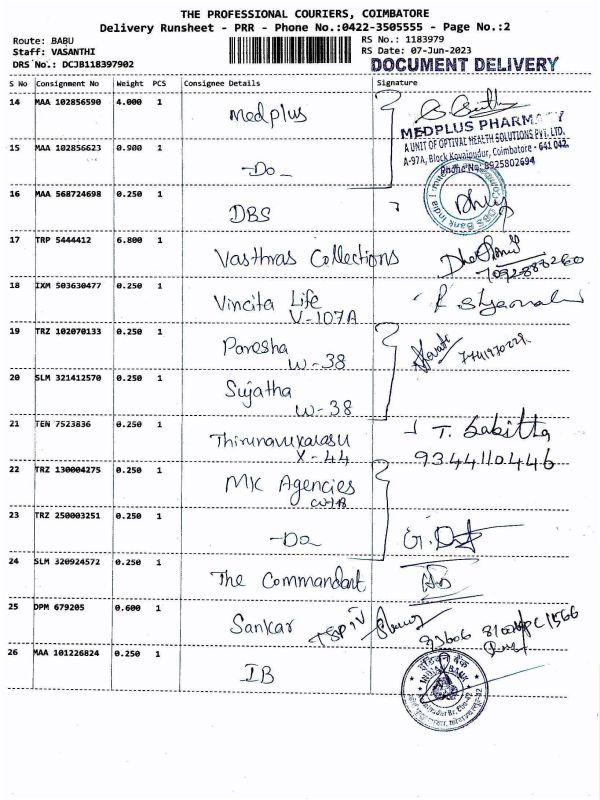 THE PROFESSIONAL COURIERS, COIMBATORE
Delivery Runsheet - PRR - Phone No.:0422-3505555 - Page No.:2
Route: BABU
RS No.: 1183979
Staff: VASANTHI
RS Date: 07-Jun-2023
DRS No.: DCJB118397902
DOCUMENT DELIVERY
S No Consignment No Weight PCS Consignee Details Signature
14 MAA 102856590 4.000 1 Medplus
MEDPLUS PHARMACY
A UNIT OF OPTIVAL HEALTH SOLUTIONS PVT. LTD.
A-97A, Block Kovaipudur, Coimbatore - 641 042.
Phone No: 8925802694
15 MAA 102856623 0.900 1 -Do-
16 MAA 568724698 0.250 1 DBS
DBS Bank India
17 TRP 5444412 6.800 1 Vasthras Collections
18 IXM 503630477 0.250 1 Vincita Life
V-107A
R Shyamala
19 TRZ 102070133 0.250 1 Paresha
W-38
20 SLM 321412570 0.250 1 Sujatha
W-38
21 TEN 7523836 0.250 1 Thirunavukarasu
X-44
T. Sabitha
9344110446
22 TRZ 130004275 0.250 1 MK Agencies
23 TRZ 250003251 0.250 1 -Do-
24 SLM 320924572 0.250 1 The Commandant
25 DPM 679205 0.600 1 Sankar TSP IV
26 MAA 101226824 0.250 1 IB
इंडियन बैंक
INDIAN BANK